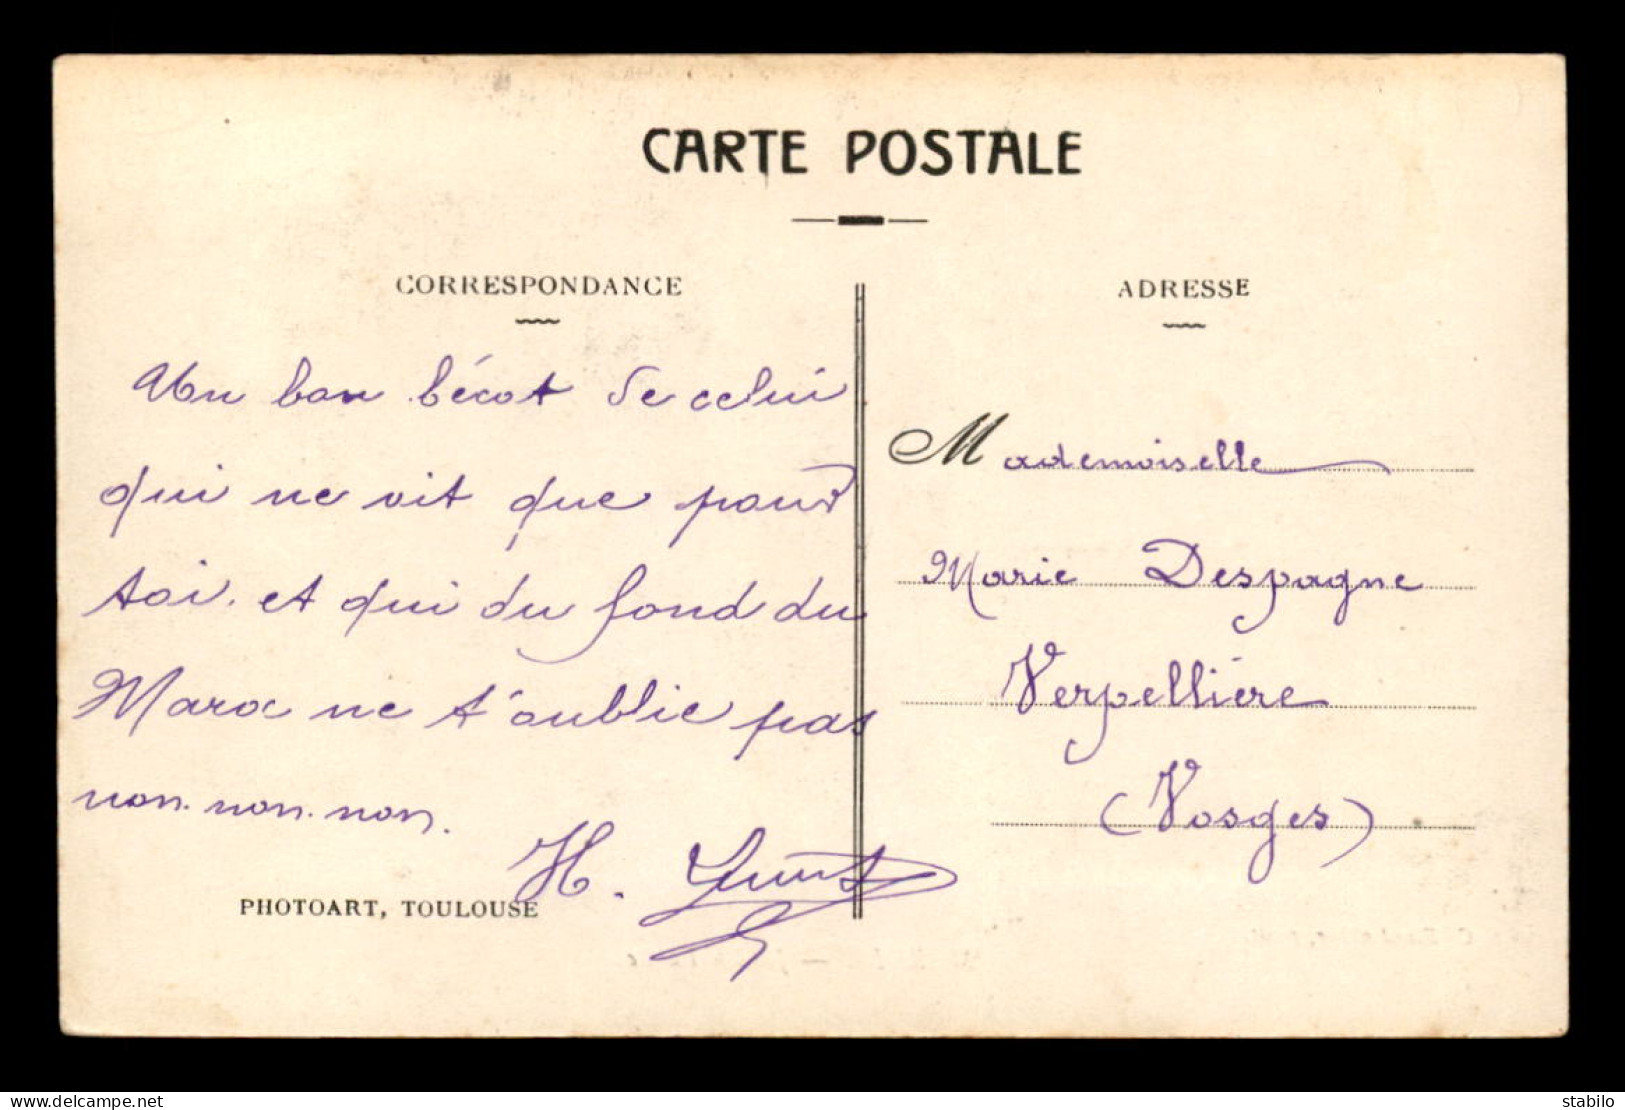 CARTE POSTALE
CORRESPONDANCE
Un bon bécot de celui
qui ne vit que pour
toi. et qui du fond du
Maroc ne t'oublie pas
non. non. non.
H.
PHOTOART, TOULOUSE
ADRESSE
Mademoiselle
Marie Despagne
Verpellière
(Vosges)
www.delcampe.net
stabilo